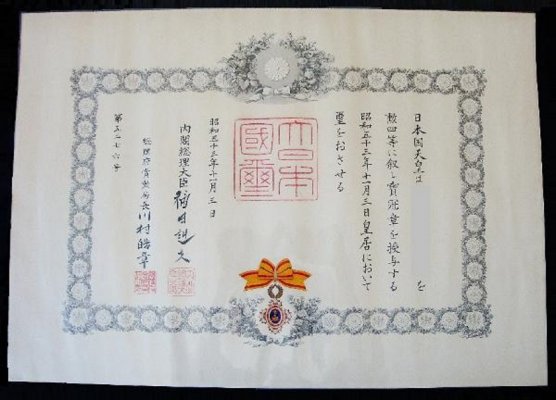 日本国天皇は　　　　を
勲四等に叙し宝冠章を授与する
昭和五十三年十一月三日皇居において
璽をおさせる
大日本國璽
昭和五十三年十一月三日
内閣総理大臣 福田赳夫
総理府賞勲局長 川村皓章
第五二七六号